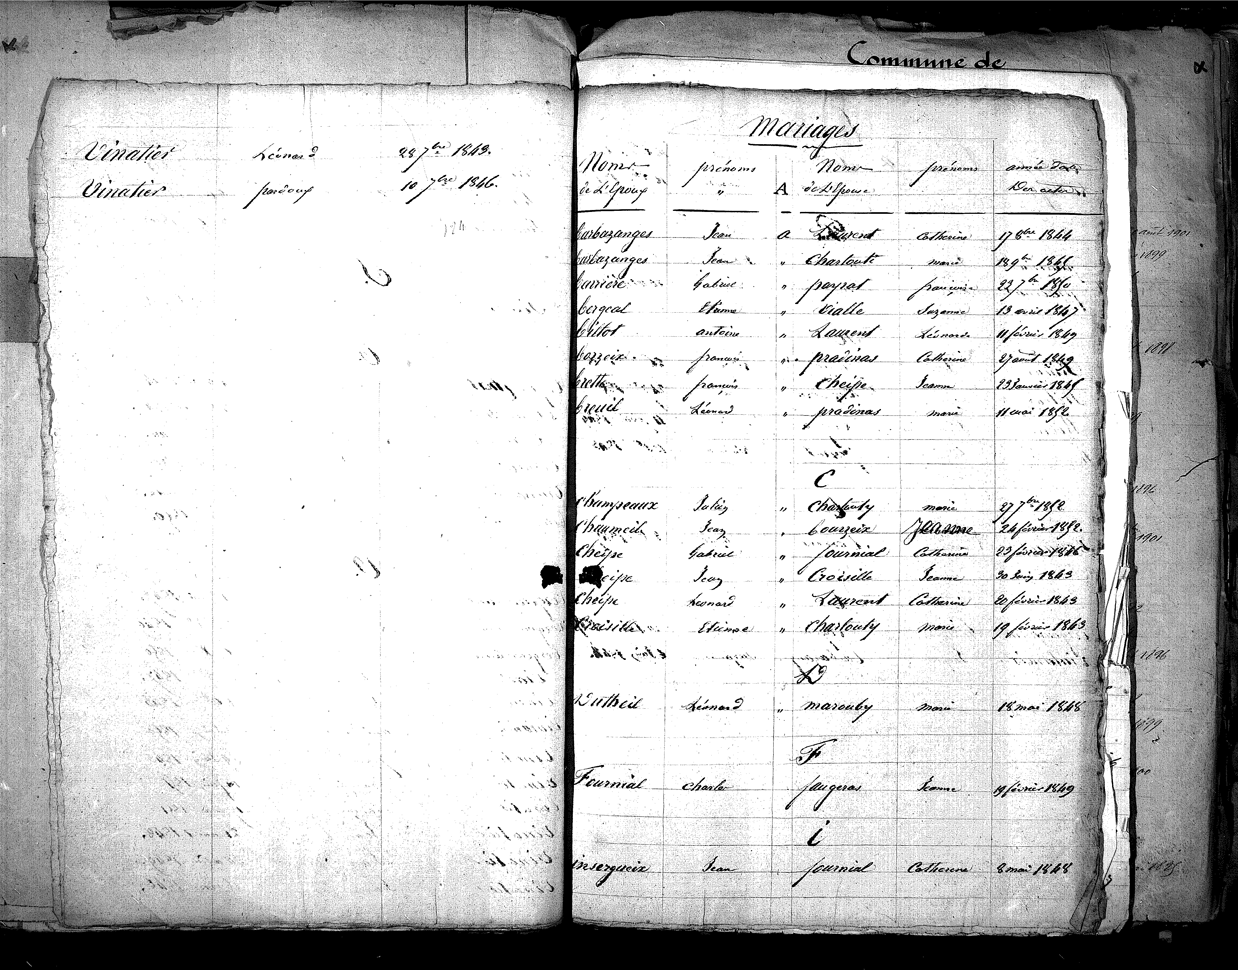 Vinatier Léonard 28 7bre 1843.
Vinatier pardoux 10 7bre 1846.
Commune de
Mariages
Noms prénoms Noms prénoms année
de L'Epoux " A de L'Epouse
barbazanges Jean a Laurent Catherine 17 8bre 1844
barbazanges Jean " Charlouty marie 18 9bre
barrière Gabriel " peyrat françoise 22 7bre
bergeal Etienne " Vialle Suzanne 13 avril 1847
antoine " Laurent Léonarde 11 février 1849
françois " pradinas Catherine 27 août 1849
françois " Cheipe Jeanne 23 Janvier
breuil Léonard " pradinas marie 11 mai 1852
C
Champeaux Julien " Charlouty marie 27 7bre 1852
Chaumeil Jean " bourzeix Jeanne 24 février 1852.
Cheipe Gabriel " fournial Catherine 23 février 1846
Cheipe Jean " Croisille Jeanne 30 Juin 1843
Cheipe Leonard " Laurent Catherine 20 février 1843
Croisille Etienne " Charlouty marie 19 février 1843
D
Dutheil Léonard " marouby marie 18 mai 1848
F
Fournial Charles faugeras Jeanne 19 février 1849
i
insergueix Jean fournial Catherine 8 mai 1848